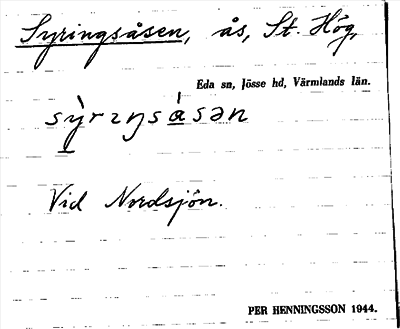 Syringsåsen, ås, St. Hög,
Eda sn, Jösse hd, Värmlands län.
sỳrɪŋsásən
Vid Nordsjön.
PER HENNINGSSON 1944.